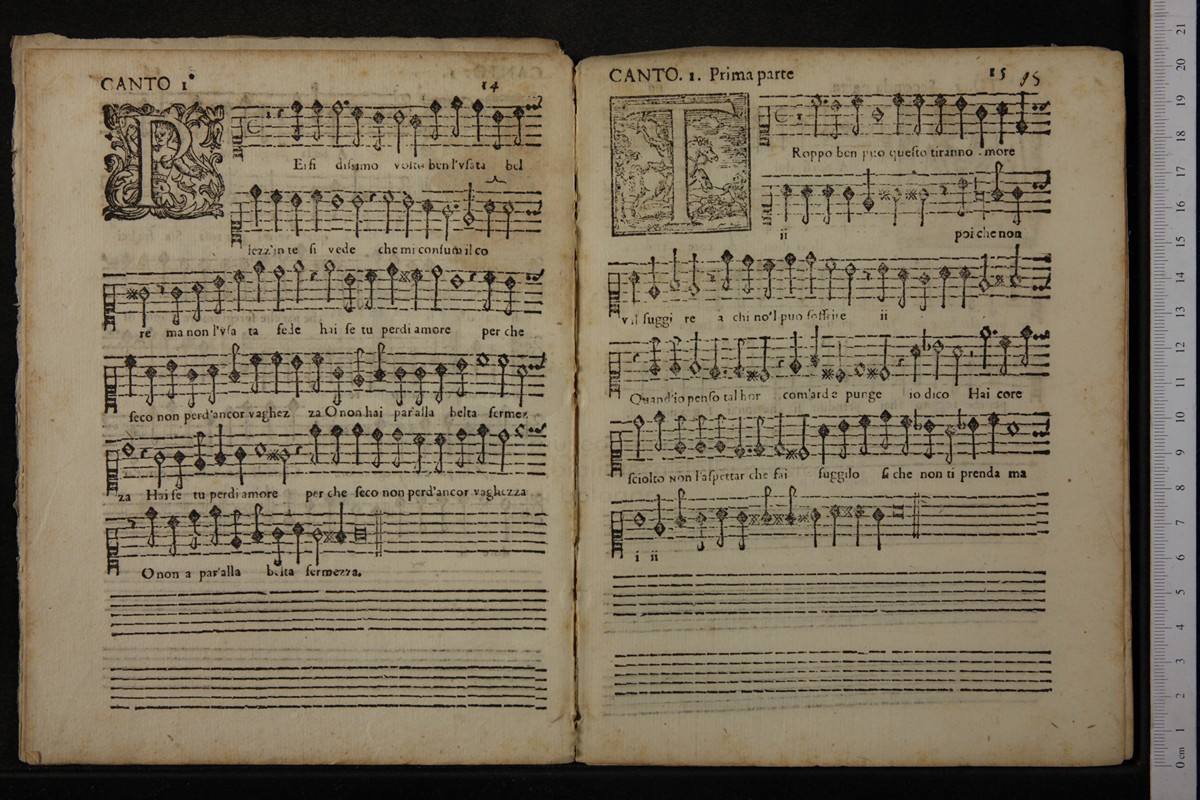 CANTO 1
14
R
Eisi dissimo volto ben l'vsata bel
lezz'in te si vede che mi consum il co
re ma non l'vsa ta fede hai se tu perdi amore per che
seco non perd'ancor vaghez za O non hai par'alla belta fermez
za Hai se tu perdi amore per che seco non perd'ancor vaghezza
O non a par'alla belta fermezza.
CANTO. 1. Prima parte
15 15
T
Roppo ben puo questo tiranno more
ii poi che non
suggi re a chi no'l puo soffrire ii
Quand'io penso tal hor com'ard e punge io dico Hai core
sciolto non l'aspettar che fai fuggilo si che non ti prenda ma
i ii
0 cm 1 2 3 4 5 6 7 8 9 10 11 12 13 14 15 16 17 18 19 20 21